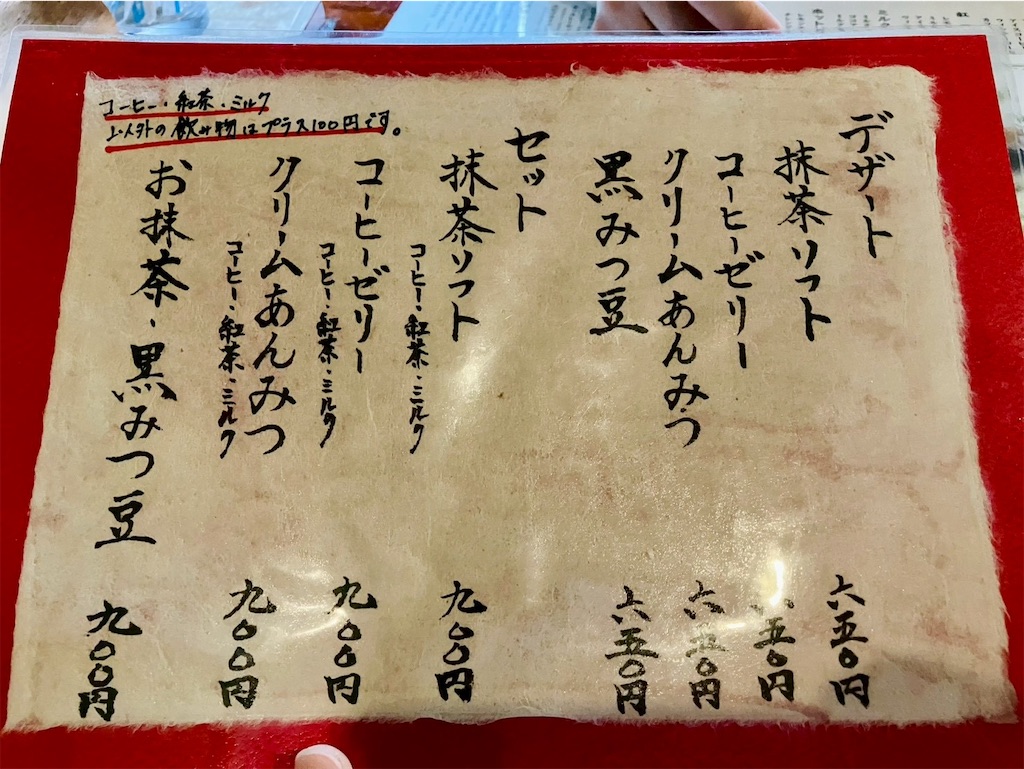 デザート
抹茶ソフト 六五〇円
コーヒーゼリー 六五〇円
クリームあんみつ 六五〇円
黒みつ豆 六五〇円
セット
抹茶ソフト 九〇〇円
コーヒー・紅茶・ミルク
コーヒーゼリー 九〇〇円
コーヒー・紅茶・ミルク
クリームあんみつ 九〇〇円
コーヒー・紅茶・ミルク
お抹茶・黒みつ豆 九〇〇円
コーヒー・紅茶・ミルク
以外の飲み物はプラス100円です。